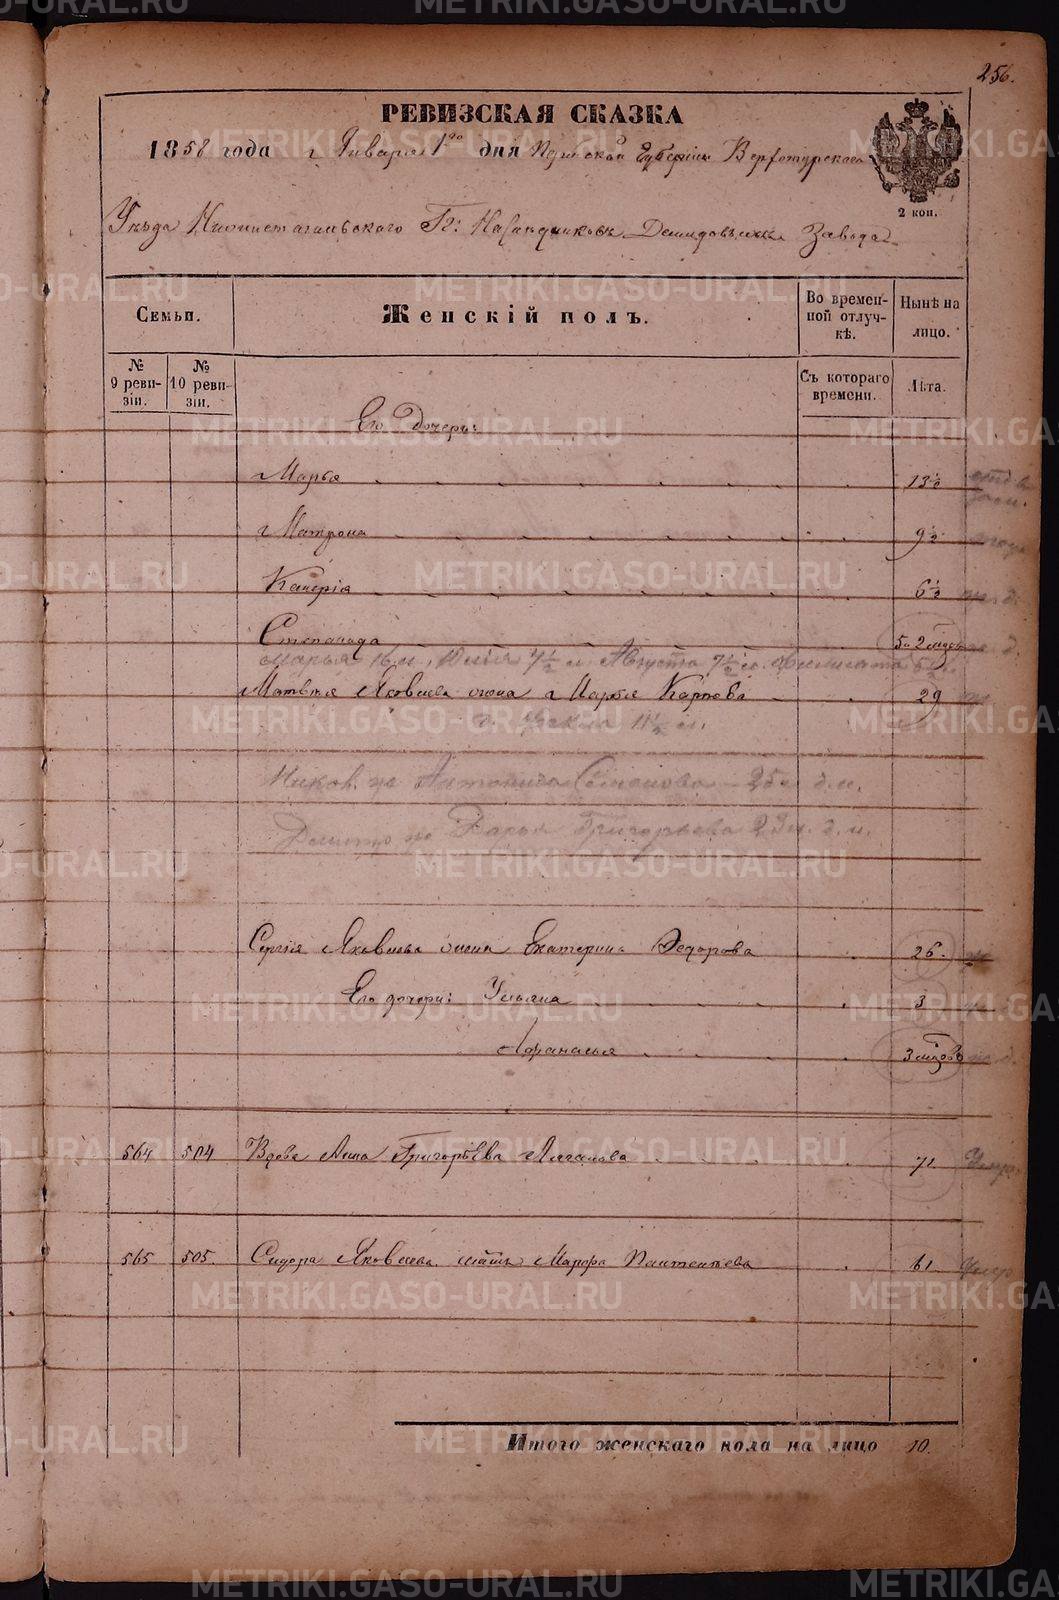 256.
РЕВИЗСКАЯ СКАЗКА
1858 года Января 1го дня Пермской Губернии Верхотурскаго
2 коп.
Уѣзда Нижнетагильскаго Гг: Наслѣдниковъ Демидовыхъ Завода
Семьи. Женскій полъ. Во временной отлучкѣ. Нынѣ на лицо.
№ 9 ревизіи. № 10 ревизіи. Съ котораго времени. Лѣта.
Его дочери:
Марья 13½
Матрона 9½
Калерія 6½
Степанида 5 и 2 мѣсяц
Марья 16 л. Юлія 7½ л. Августа 7½ л.
Матвѣя Яковлева жена Марья Карпова 29
Ѳекла 11½ л.
Никол. же Антонина Семенова 25 л. д. м.
Дмитр же Дарья Григорьева 23 л. д. м.
Сергія Яковлева жена Екатерина Ѳедорова 26.
Его дочери: Ульяна 3
Афанасья 3 мѣсяцовъ
564 504 Вдова Анна Григорьева 71. Умер.
565 505. Сидора Яковлева мать Марфа Пантелѣева 61. Умер
Итого женскаго пола на лицо 10.
METRIKI.GASO-URAL.RU